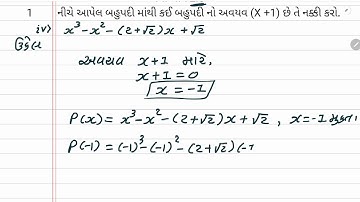 1 નીચે આપેલ બહુપદી માંથી કઈ બહુપદી નો અવયવ (X +1) છે તે નક્કી કરો.
iv) x³-x²-(2+√2)x+√2
ઉકેલ
અવયવ x+1 માટે,
x+1=0
x=-1
P(x) = x³-x²-(2+√2)x+√2 , x=-1 મુકતા
P(-1) = (-1)³-(-1)²-(2+√2)(-1